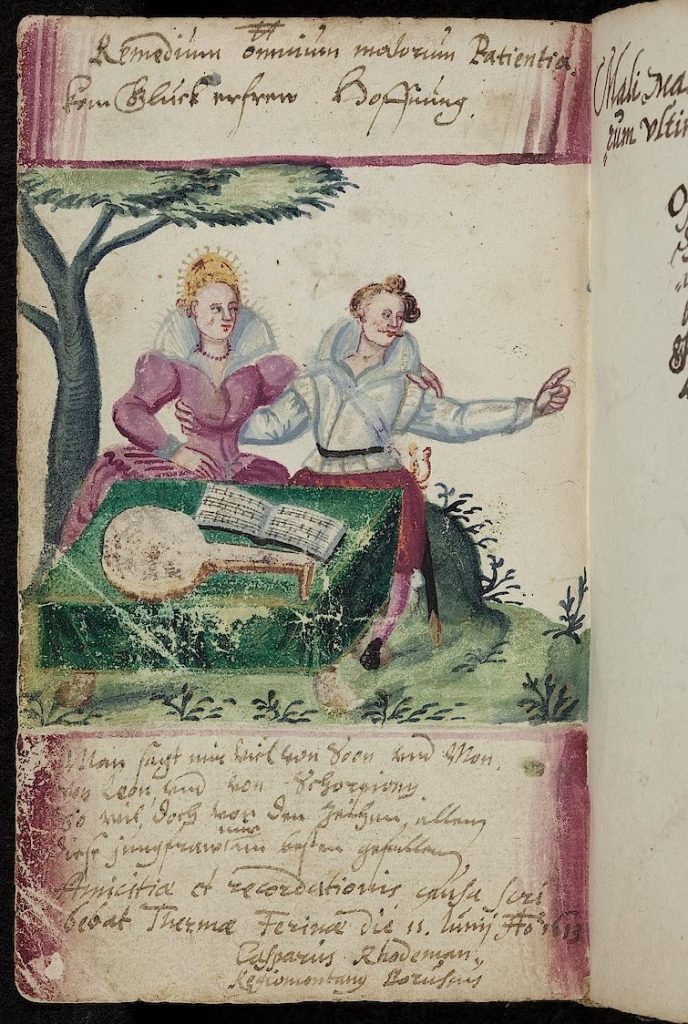 Remedium omnium malorum Patientia.
kom Glück erfrew Hoffnung.
Man sagt mir viel von Soon vnd Mon,
von Leon vnd von Schorpiony
So viel doch von den Zeichen allen
diese jungfraw mir am besten gefallen
Amicitiæ et recordationis causa scri
bebat Thermæ Ferinæ die 11. Iunij Aō 1613
Casparus Rhodeman.,
Regiomontanꝯ Borussus
Mali
cum vlti